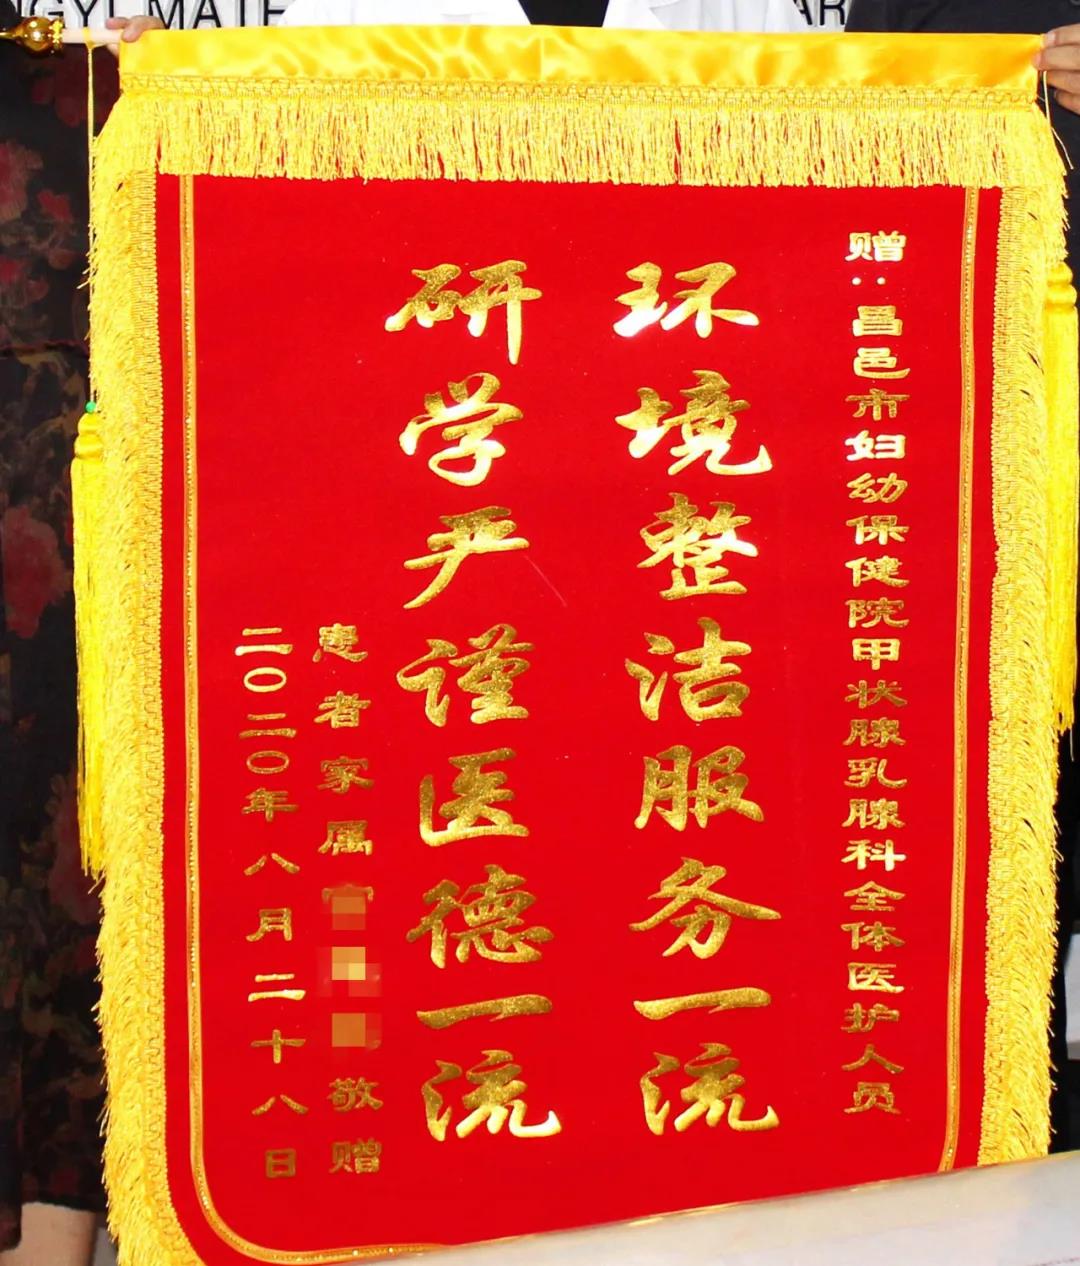 NGYI MATE
AR
赠：昌邑市妇幼保健院甲状腺乳腺科全体医护人员
环境整洁服务一流
研学严谨医德一流
患者家属 敬赠
二〇二〇年八月二十八日